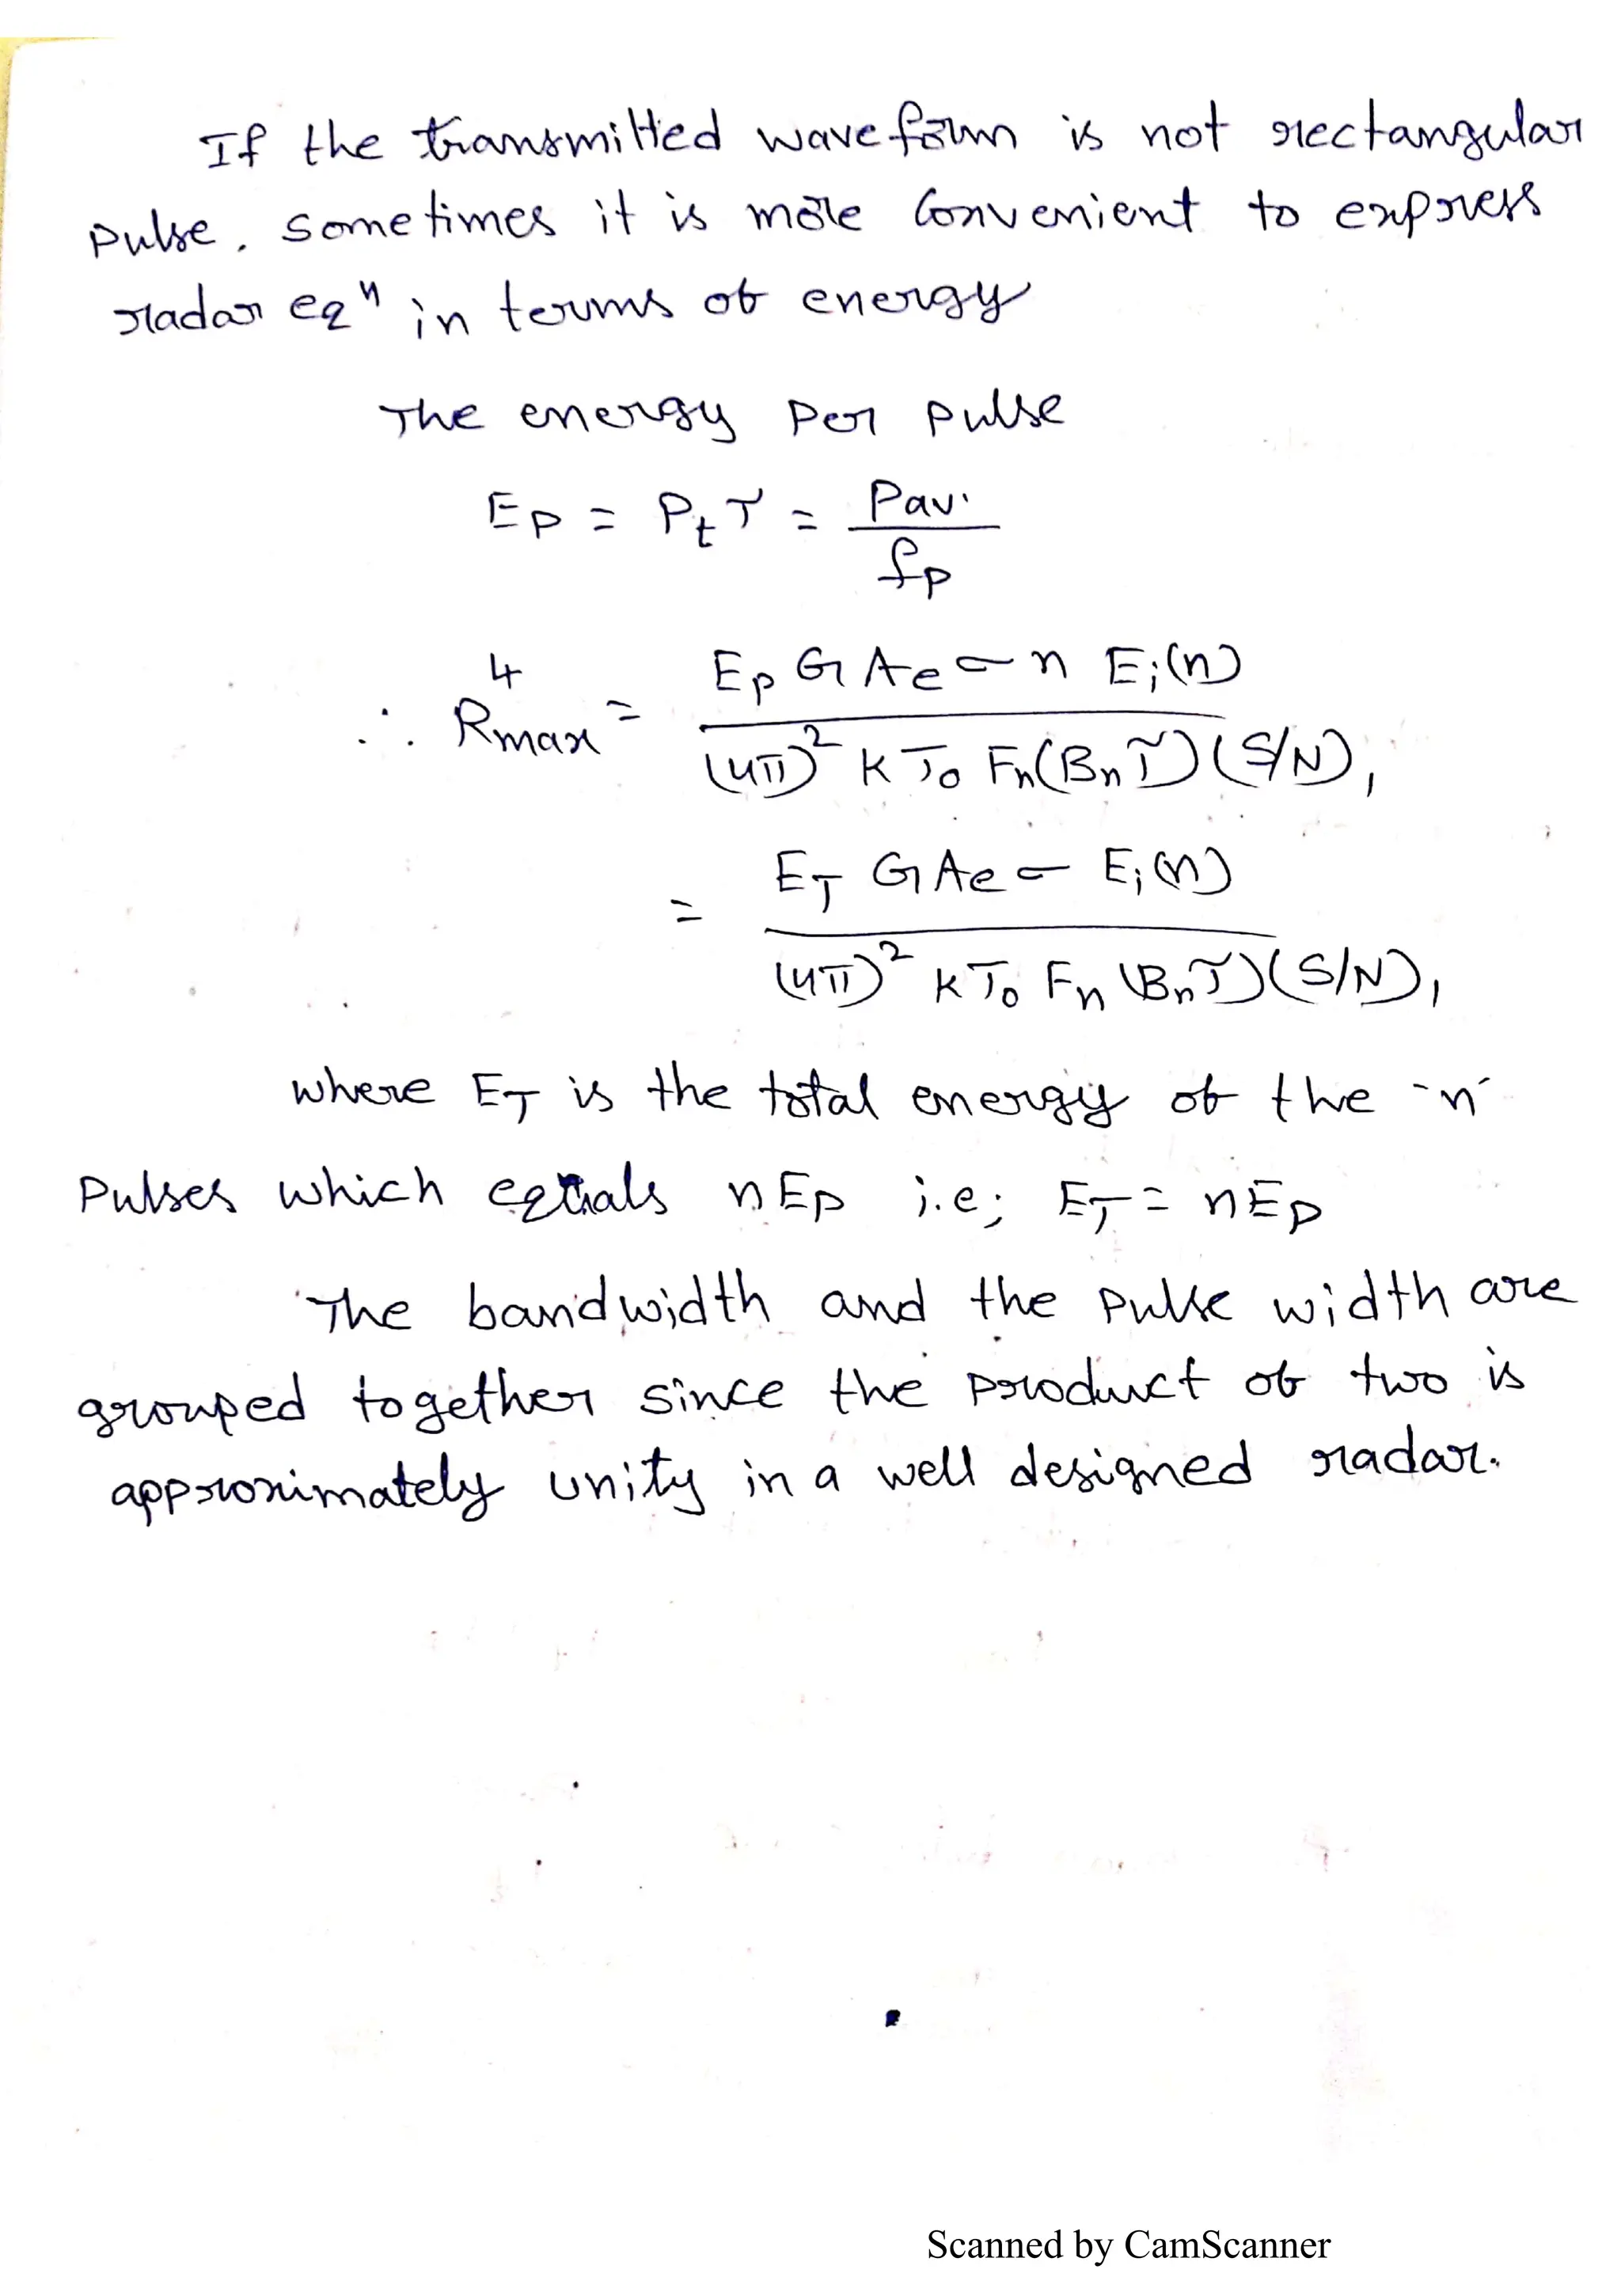 If the transmitted waveform is not rectangular
pulse. sometimes it is more convenient to express
radar eqⁿ in terms of energy
The energy per pulse
Eₚ = Pₜ τ = Pav. / fₚ
∴ R⁴max = Eₚ G Ae σ n Eᵢ(n) / (4π)² K T₀ Fₙ (Bₙ τ) (S/N)₁
= E_T G Ae σ Eᵢ(n) / (4π)² K T₀ Fₙ (Bₙ τ) (S/N)₁
where E_T is the total energy of the 'n'
pulses which equals nEₚ i.e; E_T = nEₚ
The bandwidth and the pulse width are
grouped together since the product of two is
approximately unity in a well designed radar.
Scanned by CamScanner